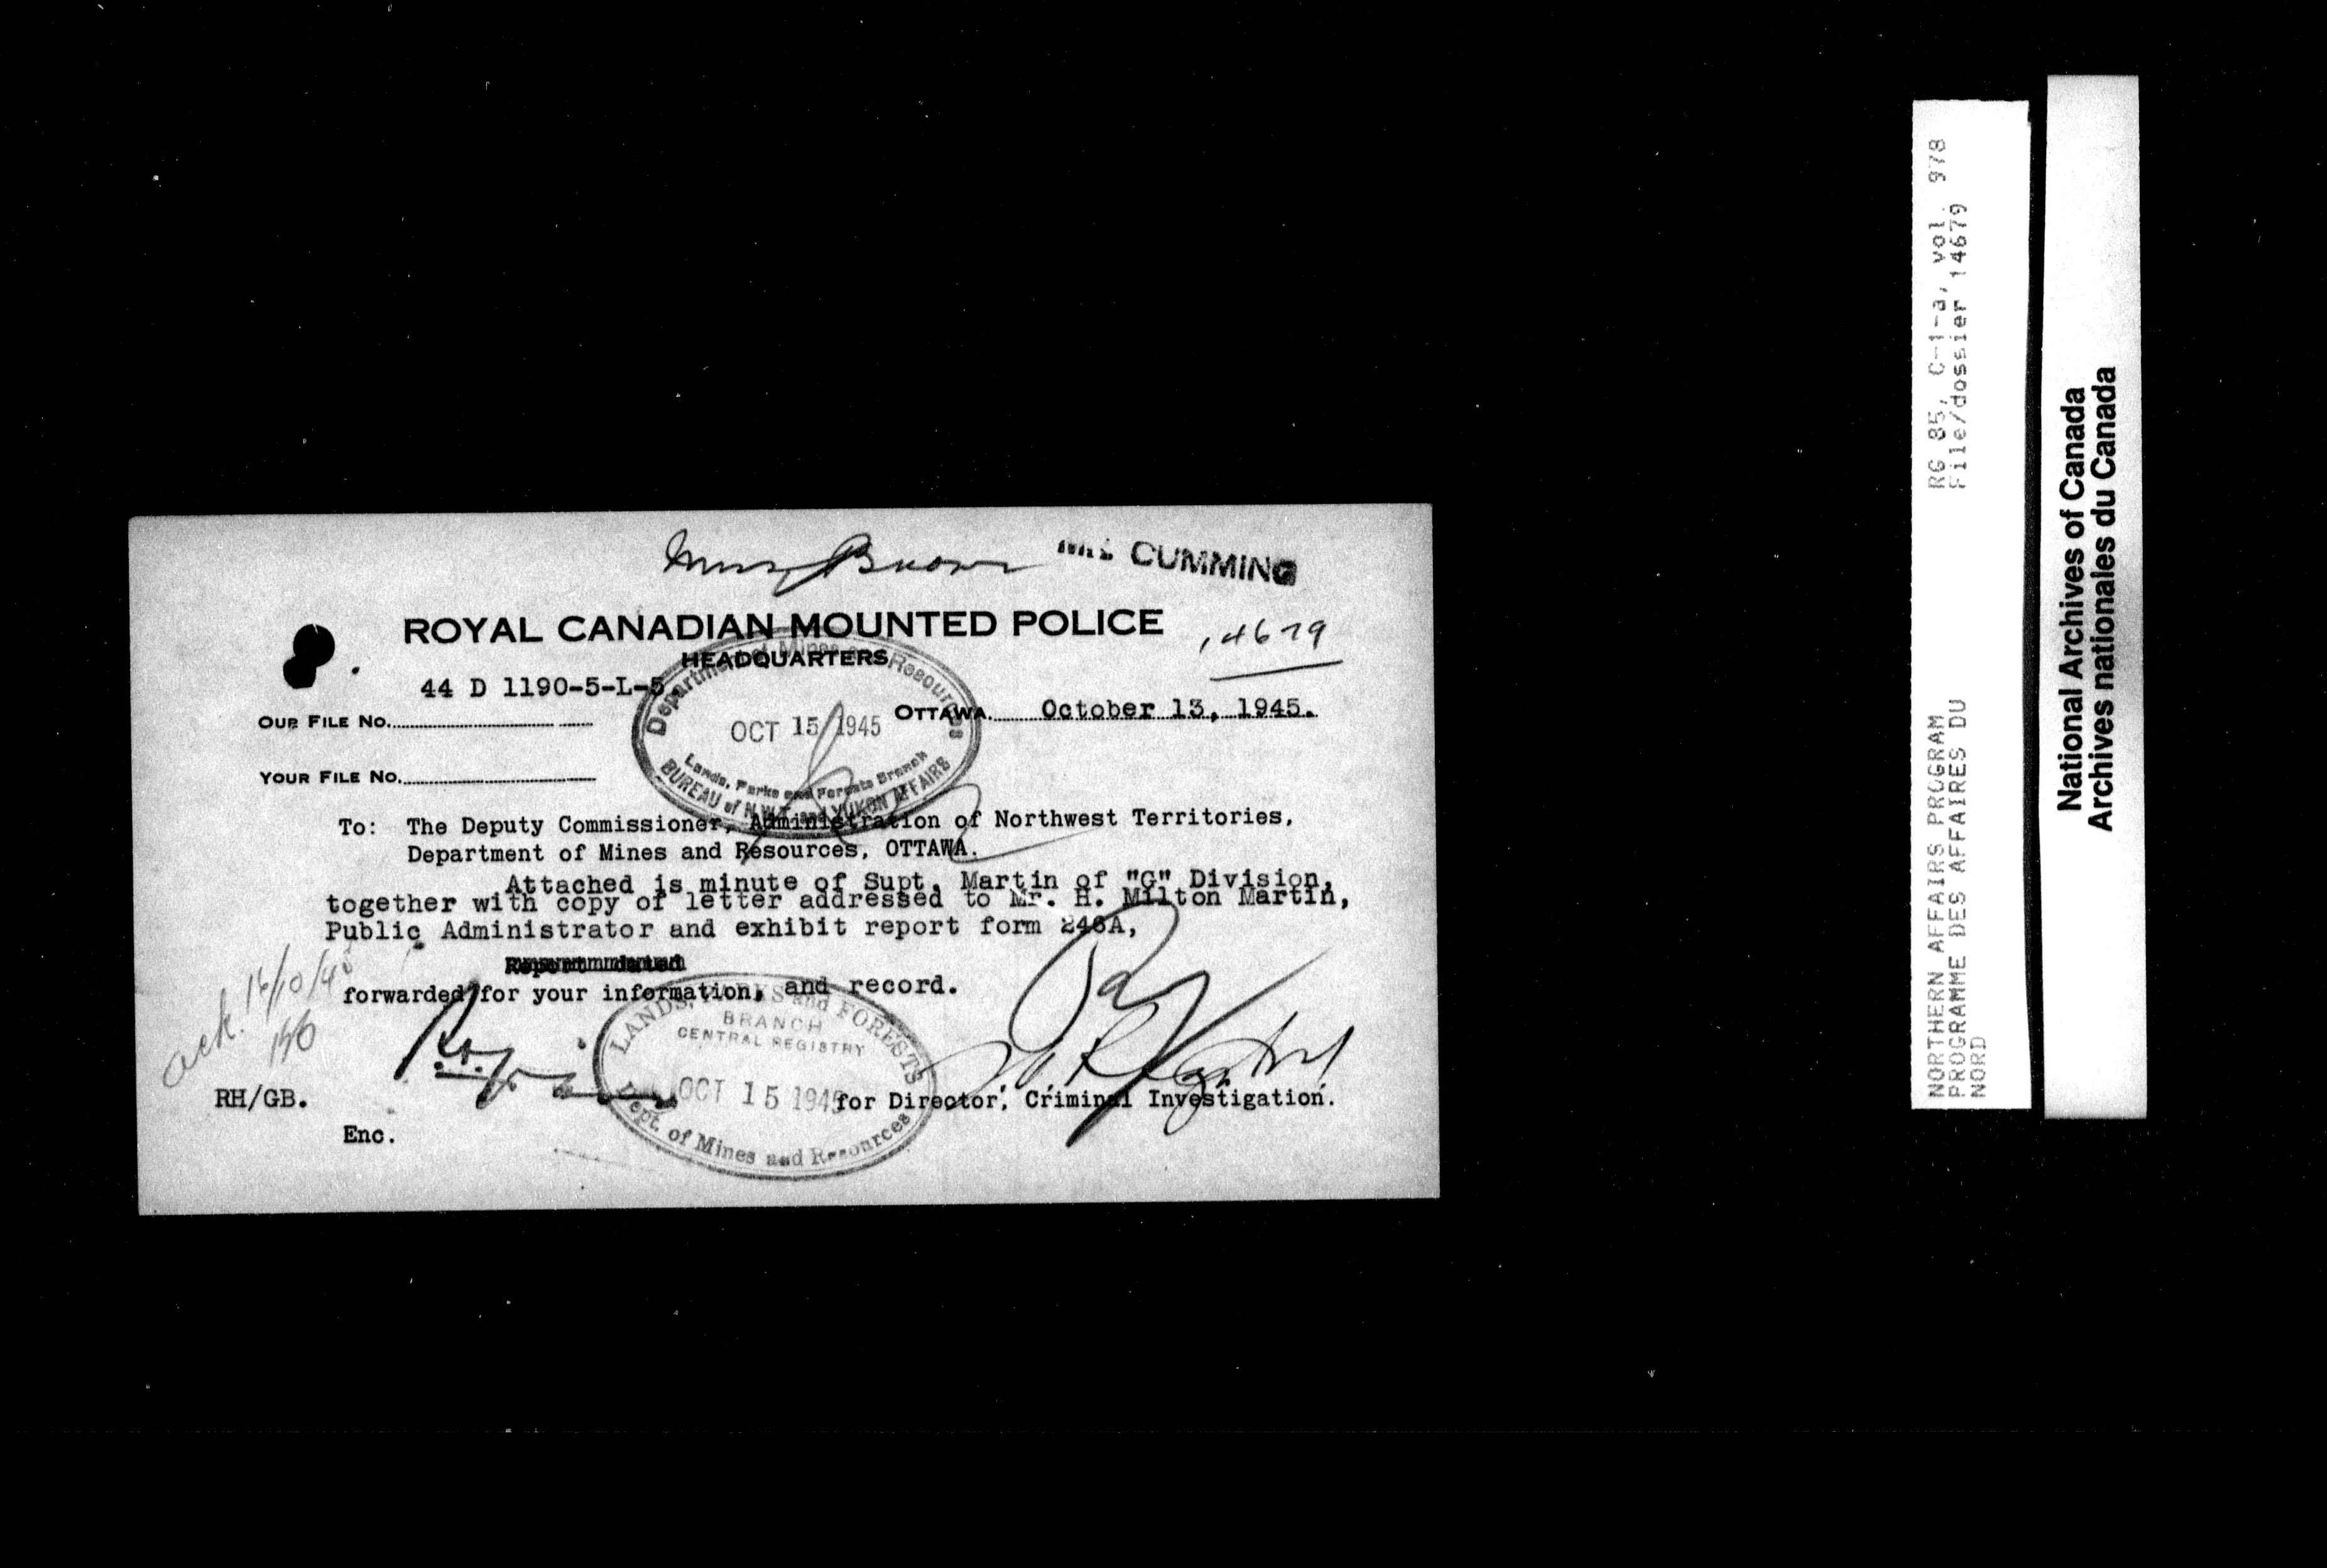 CUMMING
ROYAL CANADIAN MOUNTED POLICE
14679
HEADQUARTERS
44 D 1190-5-L-5.
OUR FILE No.
OTTAWA. October 13, 1945.
YOUR FILE No.
Department of Mines and Resources
OCT 15 1945
Lands, Parks and Forests Branch
BUREAU of N.W.T. and YUKON AFFAIRS
To: The Deputy Commissioner, Administration of Northwest Territories,
Department of Mines and Resources, OTTAWA.
Attached is minute of Supt. Martin of "G" Division,
together with copy of letter addressed to Mr. H. Milton Martin,
Public Administrator and exhibit report form 246A,
Report dated
forwarded for your information, and record.
ack. 16/10/45
LANDS, PARKS and FORESTS
BRANCH
CENTRAL REGISTRY
OCT 15 1945
Dept. of Mines and Resources
for Director, Criminal Investigation.
RH/GB.
Enc.
RG 85, C-1-a, vol. 978
File/dossier 14679
NORTHERN AFFAIRS PROGRAM
PROGRAMME DES AFFAIRES DU
NORD
National Archives of Canada
Archives nationales du Canada